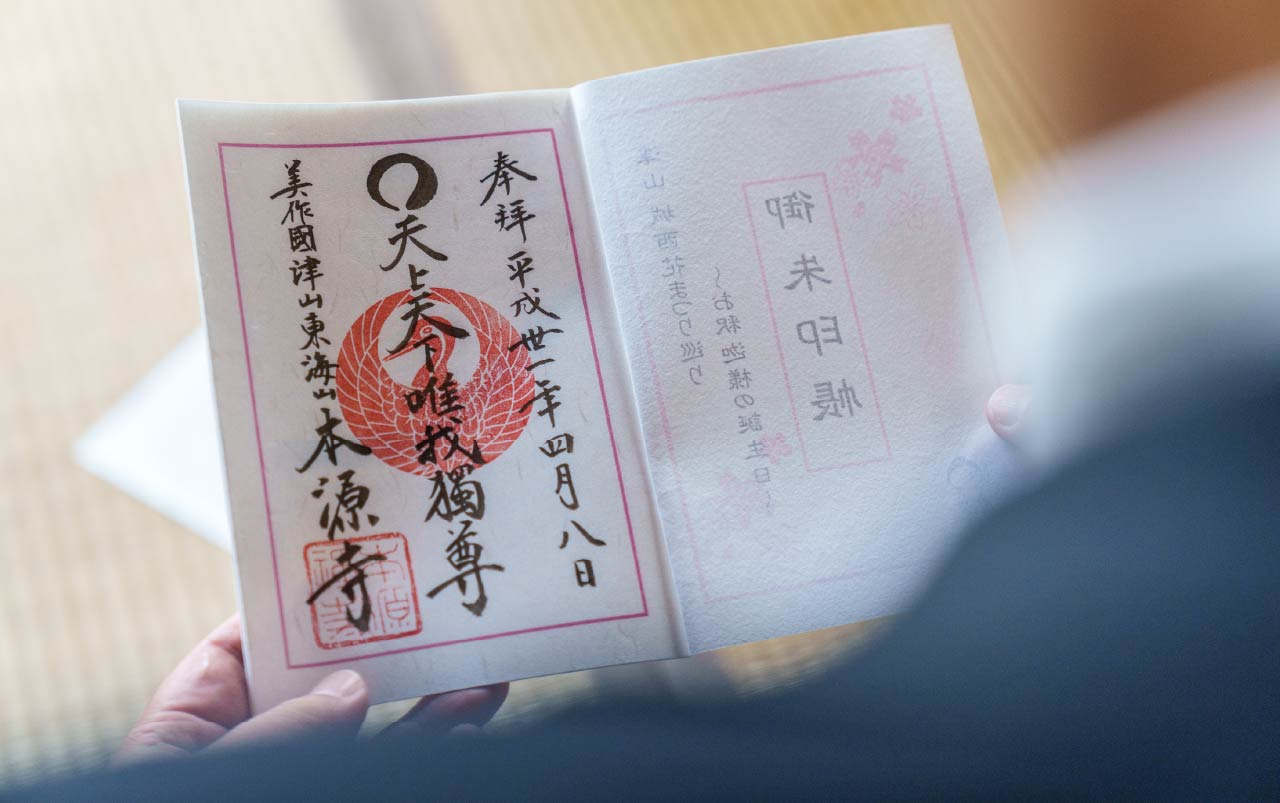 津山 城西花まつり巡り
〜お釈迦様の誕生日〜
御朱印帳
奉拝 平成丗一年四月八日
天上天下唯我獨尊
美作國津山東海山本源寺